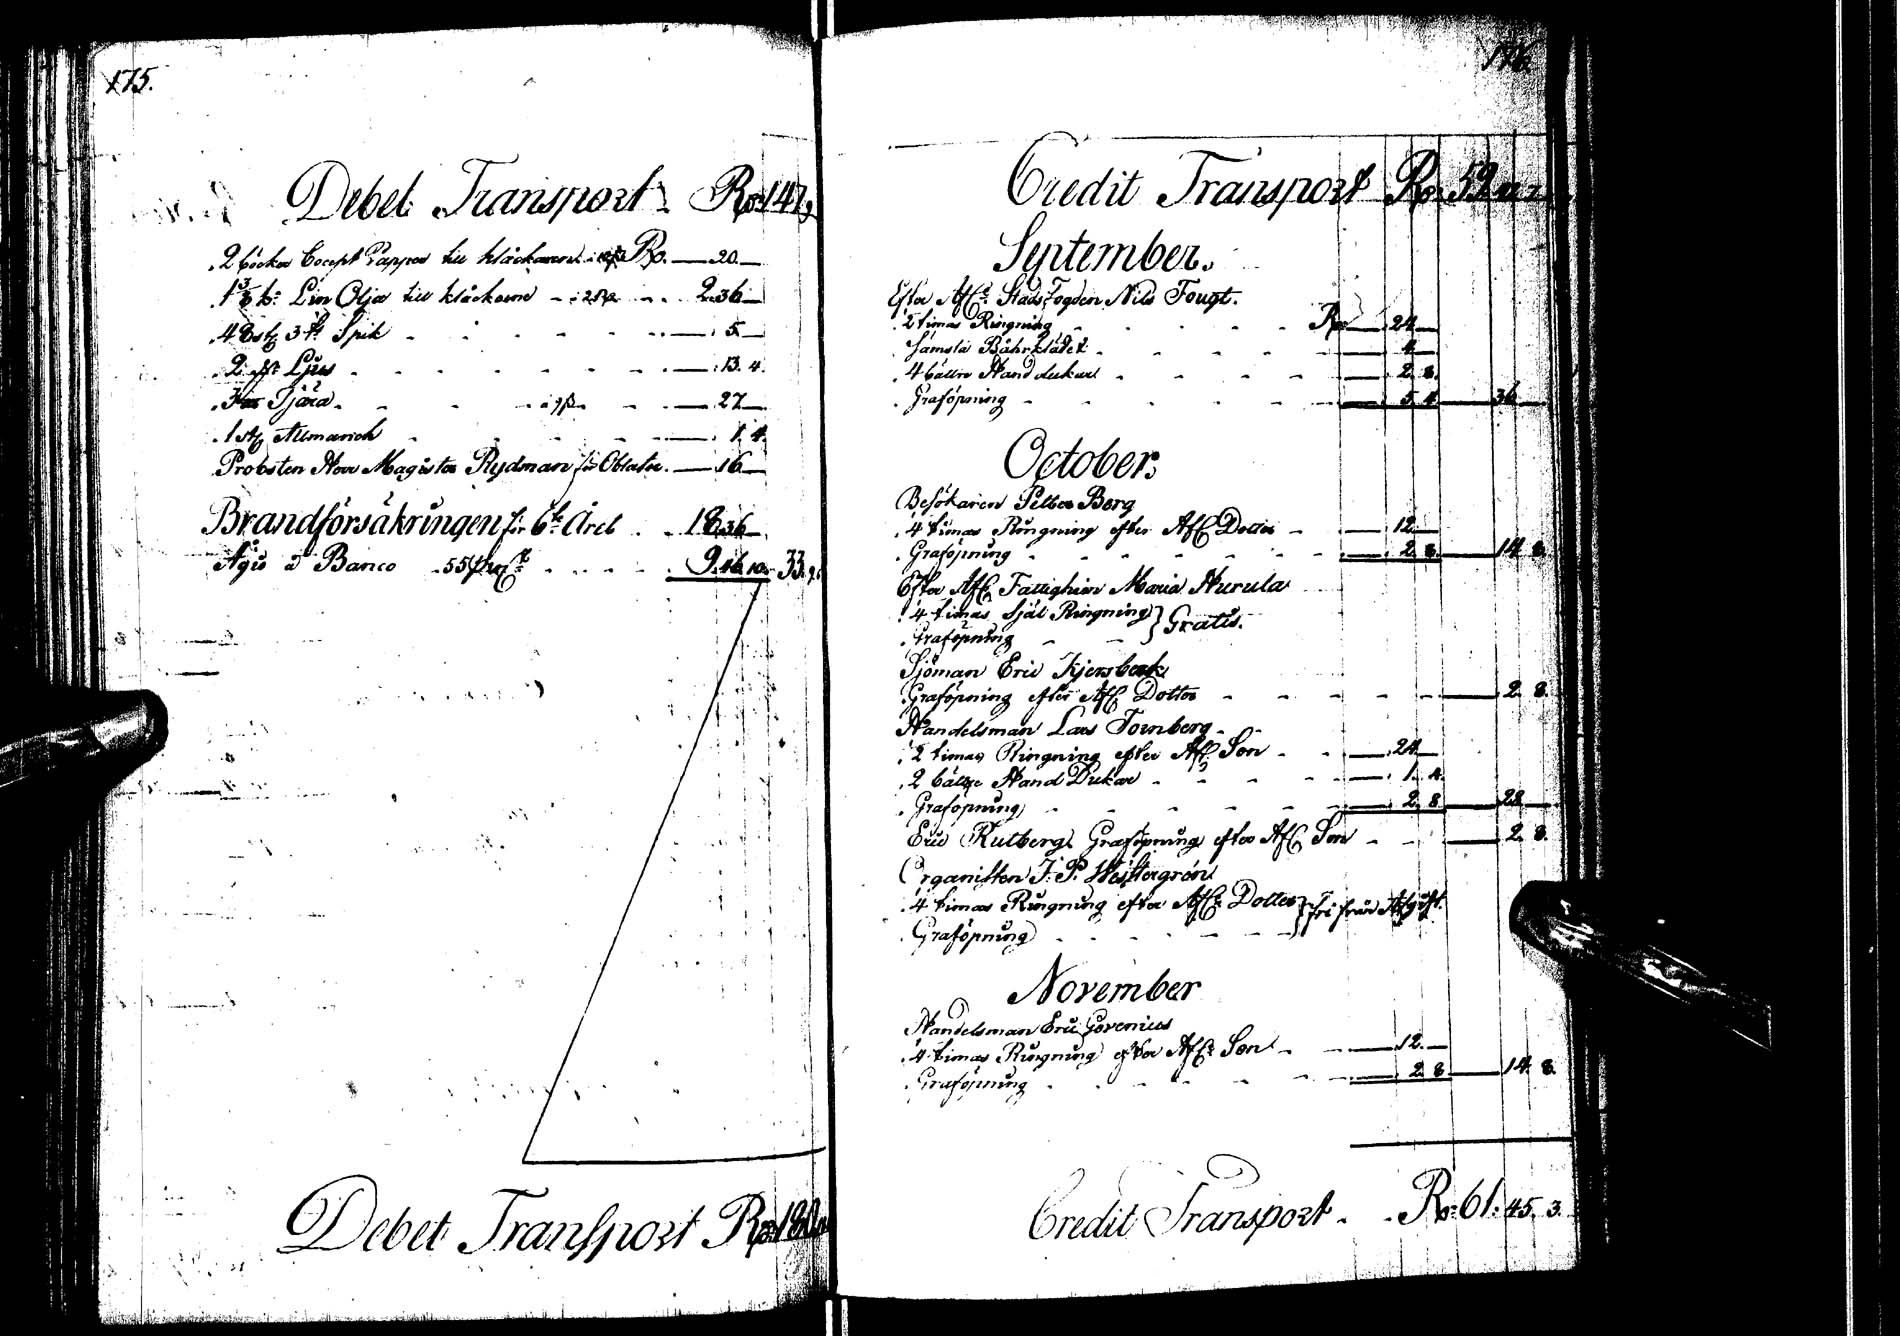 175.
Debet Transport Rdr 147,
2 böcker Concept Papper till klåckaren Rdr. — 20 —
Lin Olja till klåckarne 2. 36 —
3 Spik — 5 —
2 st Ljus — 13. 4.
Tjära — 27 —
1 st Allmanach — 1. 4.
Probsten Herr Magister Rydman för Oblater — 16 —
Brandförsäkringen för 6te Året 18. 36 —
Agio å Banco 9. 16. 10. 33.
Debet Transport Rdr 180
176.
Credit Transport Rdr 59
September.
Efter Afl. Stads Fogden Nils Fougt.
2 timar Ringning Rdr — 24 —
Sämsta Båhrklädet — 4 —
4 bättre Handdukar — 2. 8.
Graföpning — 5. 4 — 36 —
October.
Besökaren Petter Berg
4 timar Ringning efter Afl. Dotter — 12 —
Graföpning — 2. 8. — 14. 8.
Efter Afl. Fattighion Maria Hurula
4 timar Själ Ringning } Gratis.
Graföpning
Sjöman Eric
Graföpning efter Afl. Dotter — 2. 8.
Handelsman Lars Tornberg
2 timar Ringning efter Afl. Son — 24 —
2 bättre Hand Dukar — 1. 4.
Graföpning — 2. 8 — 28 —
Eric Rutberg Graföpning efter Afl. Son — 2. 8.
Organisten J. P. Westergrén
4 timar Ringning efter Afl. Dotter } fri från Afgift.
Graföpning
November
Handelsman Eric
4 timar Ringning efter Afl. Son — 12. —
Graföpning — 2. 8 — 14. 8.
Credit Transport Rdr 61. 45. 3.